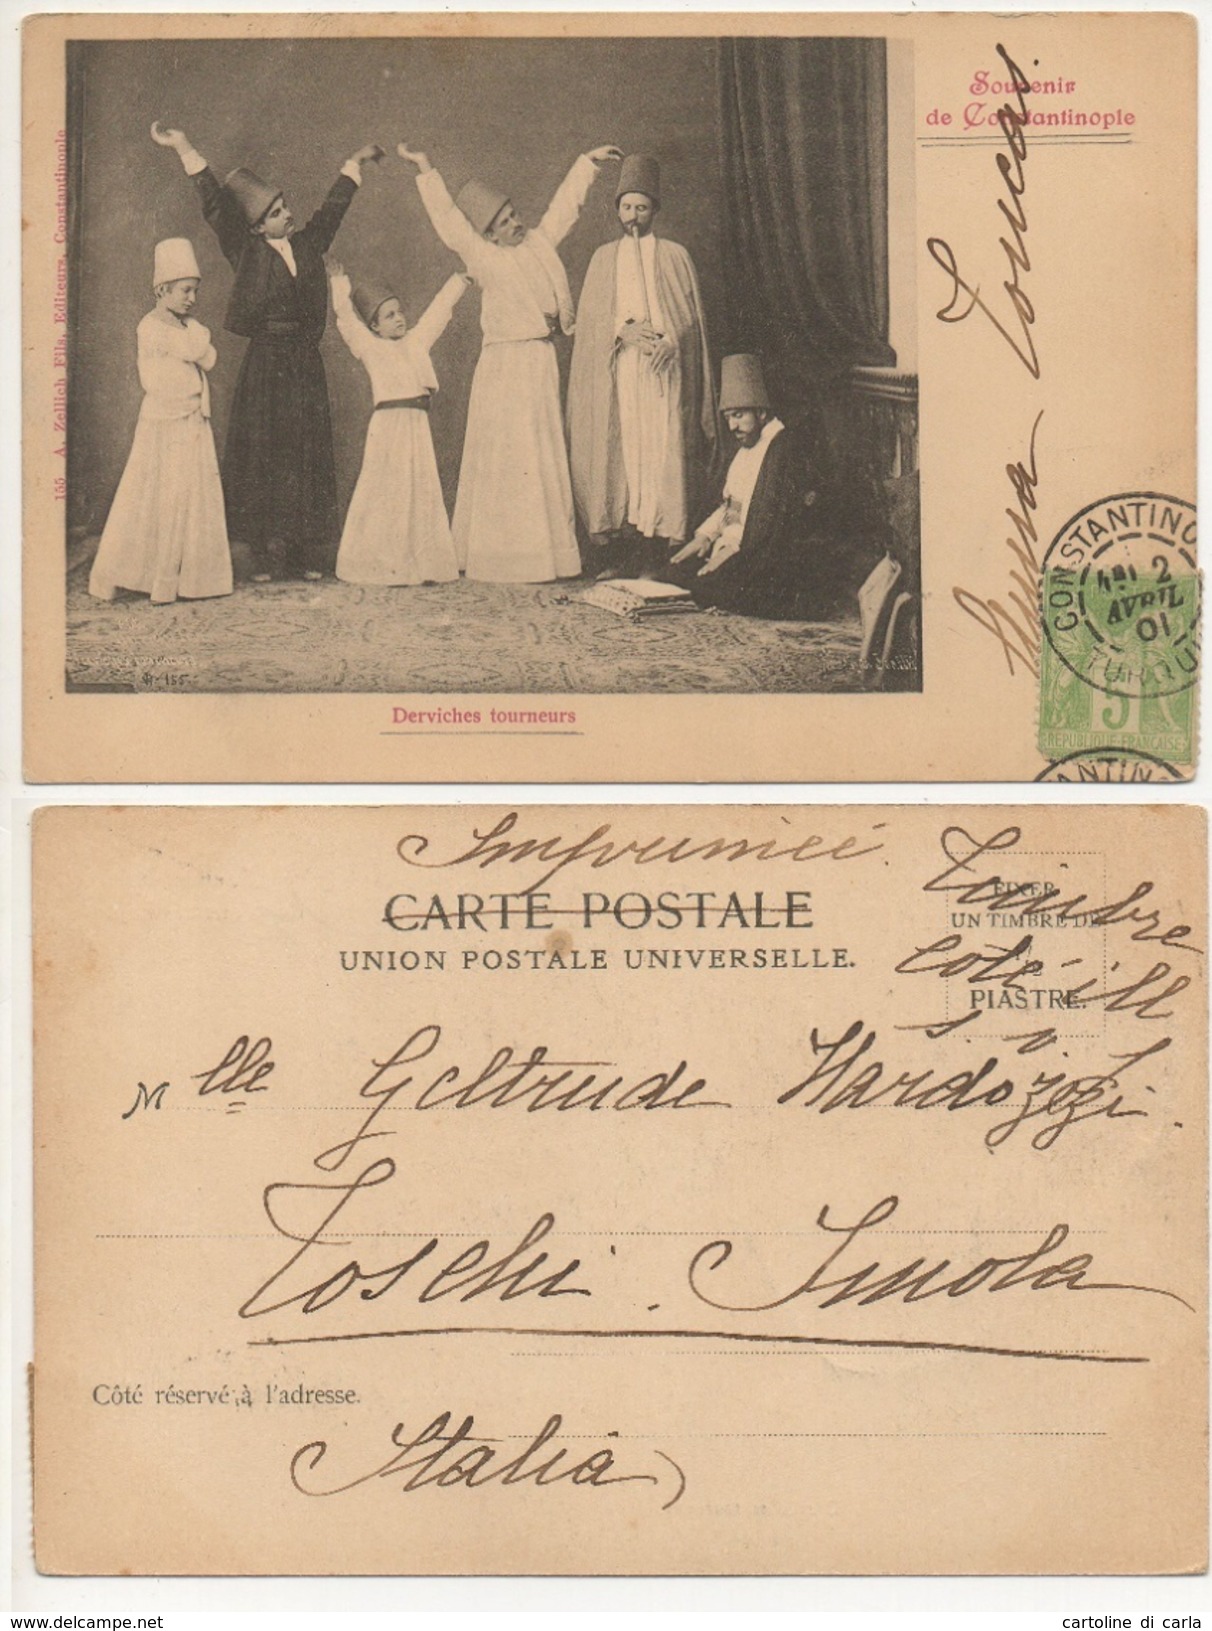 Souvenir
de Constantinople
155 A. Zellich Fils, Editeurs, Constantinople
Nr. 155
Derviches tourneurs
CONSTANTINO
2
AVRIL
01
TURQUI
5
REPUBLIQUE FRANCAISE
ANTIN
Imprimée
CARTE POSTALE
UNION POSTALE UNIVERSELLE.
FIXER
UN TIMBRE DE
PIASTRE.
Timbre
Coté ill
s. v.
Mlle Geltrude Nardozzi
Toschi. Imola
Côté réservé à l'adresse.
(Italia)
delcampe.net
cartoline di carla